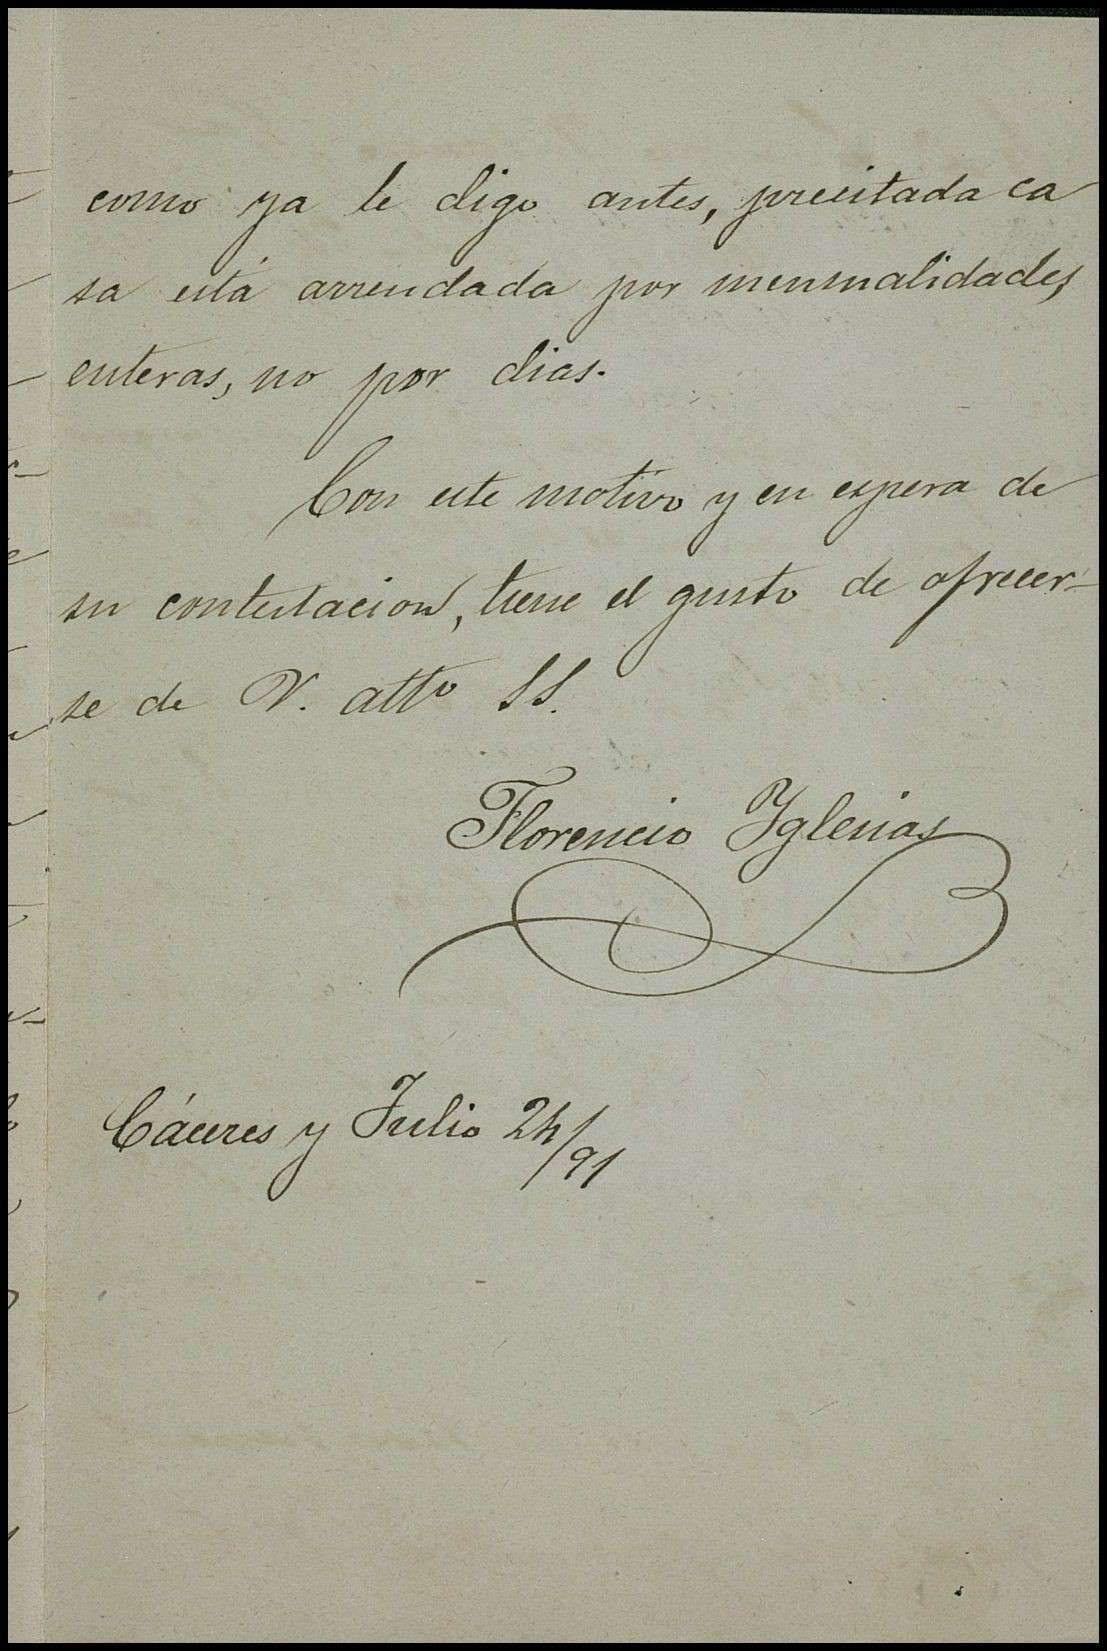 como ya le digo antes, precitada ca
sa está arrendada por mensualidades
enteras, no por dias.
Con este motivo y en espera de
su contestacion, tiene el gusto de ofrecer-
se de V. atto SS.
Florencio Yglesias
Cáceres y Julio 24/91